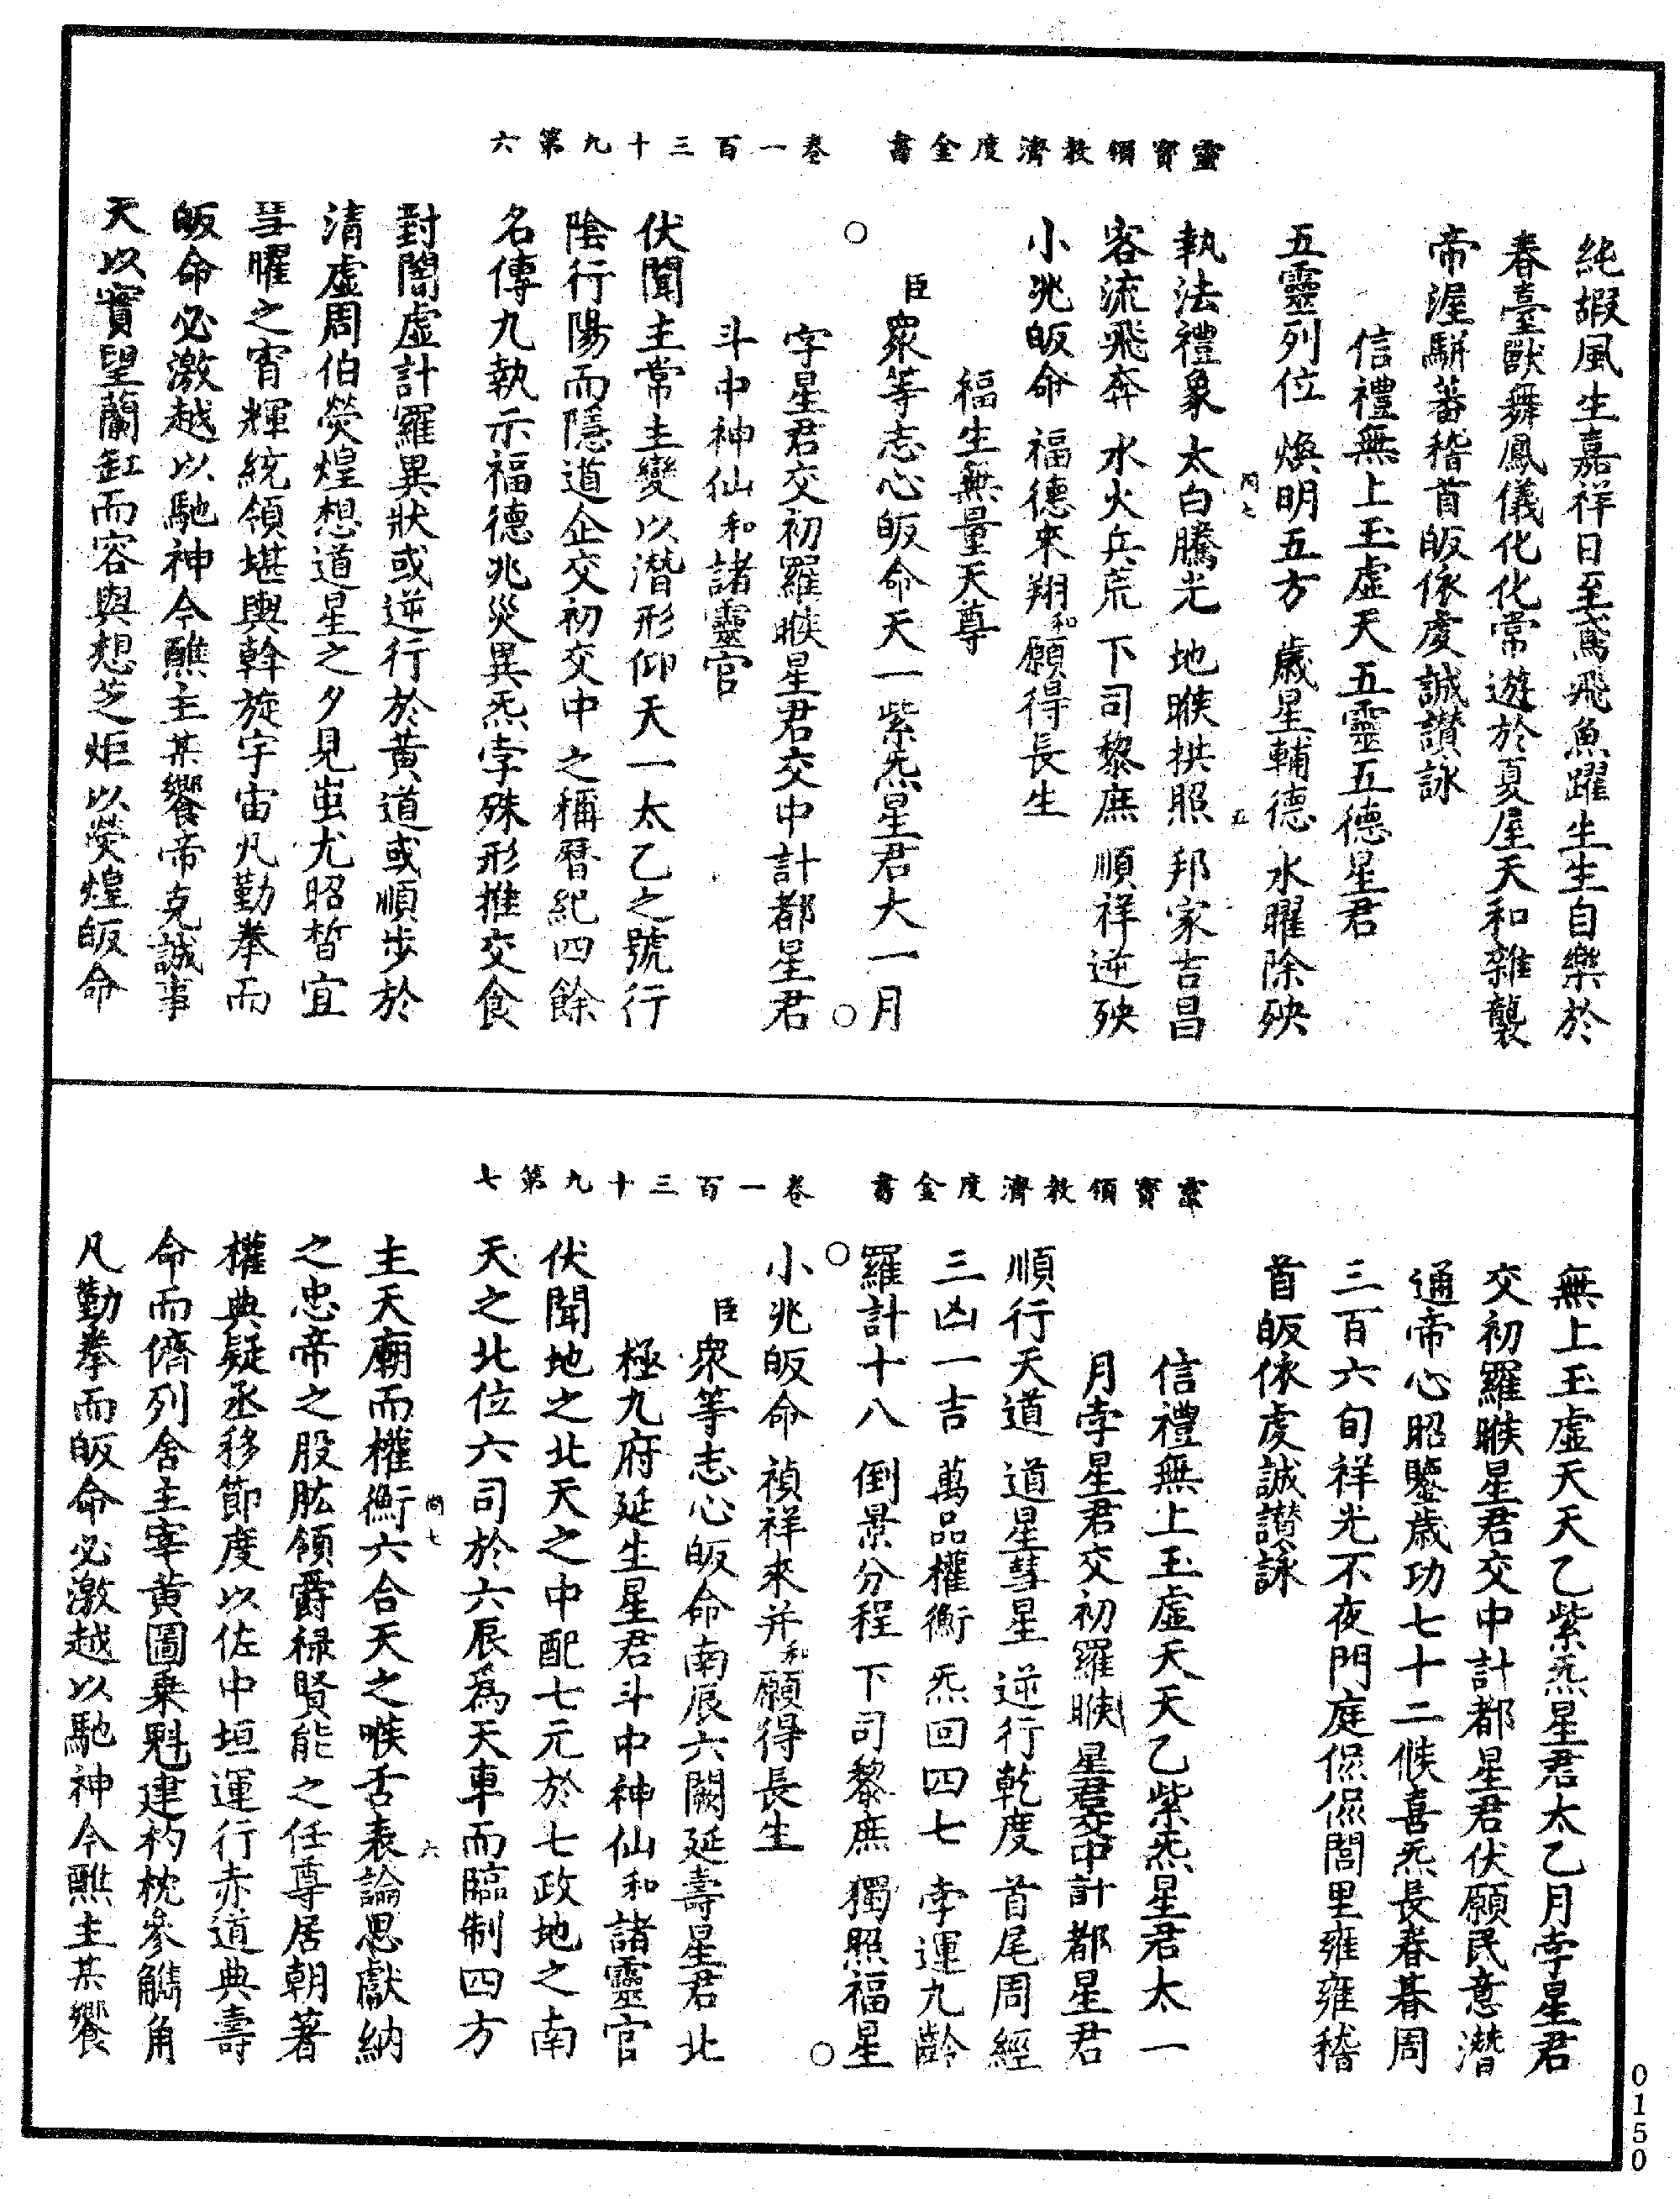 靈寶領教濟度金書　卷一百三十九第六
純嘏風生嘉祥日至鳶飛魚躍生生自樂於
春臺獸舞鳳儀化化常遊於夏屋天和雜襲
帝渥駢蕃稽首皈依虔誠讃詠
信禮無上玉虛天五靈五德星君
五靈列位　煥明五方　歲星輔德　水曜除殃
執法禮象　太白騰光　地㬋拱照　邦家吉昌
客流飛奔　水火兵荒　下司黎庶　順祥逆殃
小兆皈命　福德來翔和願得長生
福生無量天尊
○
臣眾等志心皈命天一紫炁星君大一月
○
孛星君交初羅㬋星君交中計都星君
斗中神仙和諸靈官
伏聞主常主變以潛形仰天一太乙之號行
陰行陽而隱道企交初交中之稱曆紀四餘
名傳九執示福德兆災異炁孛殊形推交食
對闇虛計羅異狀或逆行於黄道或順步於
清虛周伯熒煌想道星之夕見蚩尤昭晳宜
彗曜之宵輝統領堪輿斡旋宇宙凡勤拳而
皈命必激越以馳神今醮主某饗帝克誠事
天以實望蘭缸而容與想芝炬以熒煌皈命
靈寶領教濟度金書　卷一百三十九第七
無上玉虛天天乙紫炁星君太乙月孛星君
交初羅㬋星君交中計都星君伏願民意潛
通帝心昭鑒歲功七十二候喜炁長春朞周
三百六旬祥光不夜門庭熙熙閭里雍雍稽
首皈依虔誠讃詠
信禮無上玉虛天天乙紫炁星君太一
月孛星君交初羅㬋星君交中計都星君
順行天道　道星彗星　逆行乾度　首尾周經
三凶一吉　萬品權衡　炁回四七　孛運九齡
羅計十八　倒景分程　下司黎庶　獨照福星
○
小兆皈命　禎祥來并和願得長生
○
臣眾等志心皈命南辰六闕延壽星君北
極九府延生星君斗中神仙和諸靈官
伏聞地之北天之中配七元於七政地之南
天之北位六司於六辰爲天車而臨制四方
主天廟而權衡六合天之喉舌表論思獻納
之忠帝之股肱領爵禄賢能之任尊居朝著
權典疑丞移節度以佐中垣運行赤道典壽
命而儕列舍主宰黄圖乗魁建杓枕參觿角
凡勤拳而皈命必激越以馳神今醮主某饗
0150